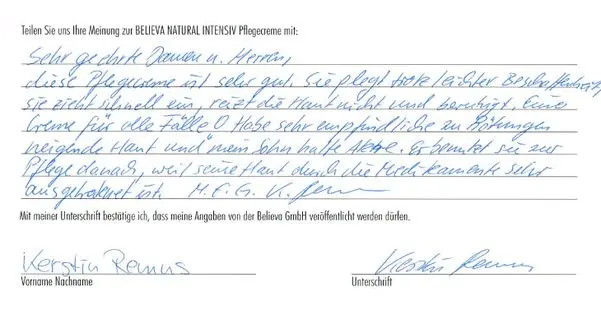 Teilen Sie uns Ihre Meinung zur BELIEVA NATURAL INTENSIV Pflegecreme mit:
Sehr geehrte Damen u. Herren,
diese Pflegecreme ist sehr gut. Sie pflegt trotz leichter Beschaffenheit,
sie zieht schnell ein, reizt die Haut nicht und beruhigt. Eine
Creme für alle Fälle! Habe sehr empfindliche zu Rötungen
neigende Haut und mein Sohn hatte Akne. Er benutzt sie zur
Pflege danach, weil seine Haut durch die Medikamente sehr
ausgetrocknet ist. M.F.G. K.
Mit meiner Unterschrift bestätige ich, dass meine Angaben von der Believa GmbH veröffentlicht werden dürfen.
Kerstin Remus
Vorname Nachname
Unterschrift